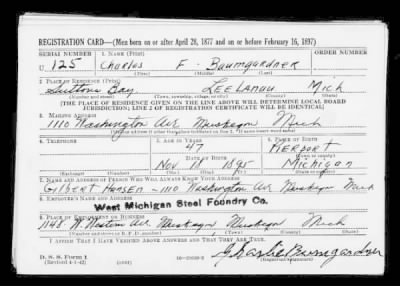 REGISTRATION CARD—(Men born on or after April 28, 1877 and on or before February 16, 1897)
SERIAL NUMBER 1. NAME (Print) ORDER NUMBER
U 125 Charles F. Baumgardner
(First) (Middle) (Last)
2. PLACE OF RESIDENCE (Print)
Suttons Bay LEELANAU Mich
(Number and street) (Town, township, village, or city) (County) (State)
[THE PLACE OF RESIDENCE GIVEN ON THE LINE ABOVE WILL DETERMINE LOCAL BOARD
JURISDICTION; LINE 2 OF REGISTRATION CERTIFICATE WILL BE IDENTICAL]
3. MAILING ADDRESS
1110 Washington Ave. Muskegon Mich
[Mailing address if other than place indicated on line 2. If same insert word same]
4. TELEPHONE 5. AGE IN YEARS 6. PLACE OF BIRTH
47
DATE OF BIRTH
Nov 11 1895 MICHIGAN
(Exchange) (Number) (Mo.) (Day) (Yr.) (State or country)
7. NAME AND ADDRESS OF PERSON WHO WILL ALWAYS KNOW YOUR ADDRESS
GILBERT HANSEN - 1110 Washington Ave Muskegon Mich
8. EMPLOYER'S NAME AND ADDRESS
West Michigan Steel Foundry Co.
9. PLACE OF EMPLOYMENT OR BUSINESS
1148 W. Western Ave. Muskegon, Muskegon Mich
(Number and street or R. F. D. number) (Town) (County) (State)
I AFFIRM THAT I HAVE VERIFIED ABOVE ANSWERS AND THAT THEY ARE TRUE.
D. S. S. Form 1
(Revised 4-1-42) (over) Charlie Baumgardner